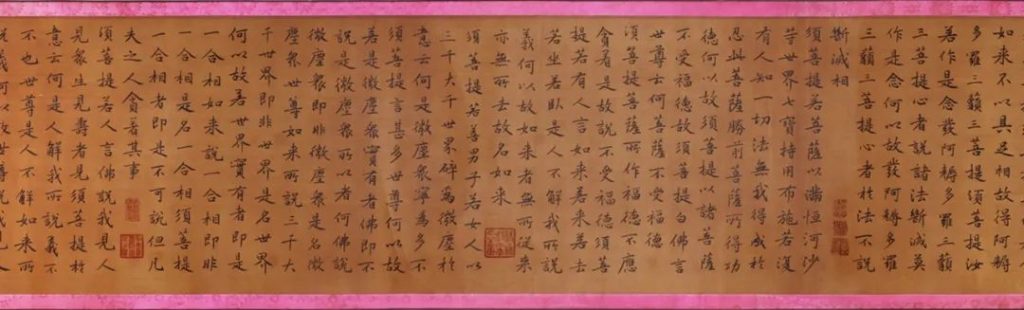 如来不以具足相故得阿耨
多羅三藐三菩提須菩提汝
若作是念發阿耨多羅三藐
三菩提心者說諸法斷滅莫
作是念何以故發阿耨多羅
三藐三菩提心者於法不說
斷滅相
須菩提若菩薩以滿恒河沙
等世界七寶持用布施若復
有人知一切法無我得成於
忍此菩薩勝前菩薩所得功
德何以故須菩提以諸菩薩
不受福德故須菩提白佛言
世尊云何菩薩不受福德
須菩提菩薩所作福德不應
貪著是故說不受福德須菩
提若有人言如来若来若去
若坐若臥是人不解我所說
義何以故如来者無所從来
亦無所去故名如来
須菩提若善男子善女人以
三千大千世界碎為微塵於
意云何是微塵衆寧為多不
須菩提言甚多世尊何以故
若是微塵衆實有者佛即不
說是微塵衆所以者何佛說
微塵衆即非微塵衆是名微
塵衆世尊如来所說三千大
千世界即非世界是名世界
何以故若世界實有者即是
一合相如来說一合相即非
一合相是名一合相須菩提
一合相者即是不可說但凡
夫之人貪著其事
須菩提若人言佛說我見人
見衆生見壽者見須菩提於
意云何是人解我所說義不
不也世尊是人不解如来所